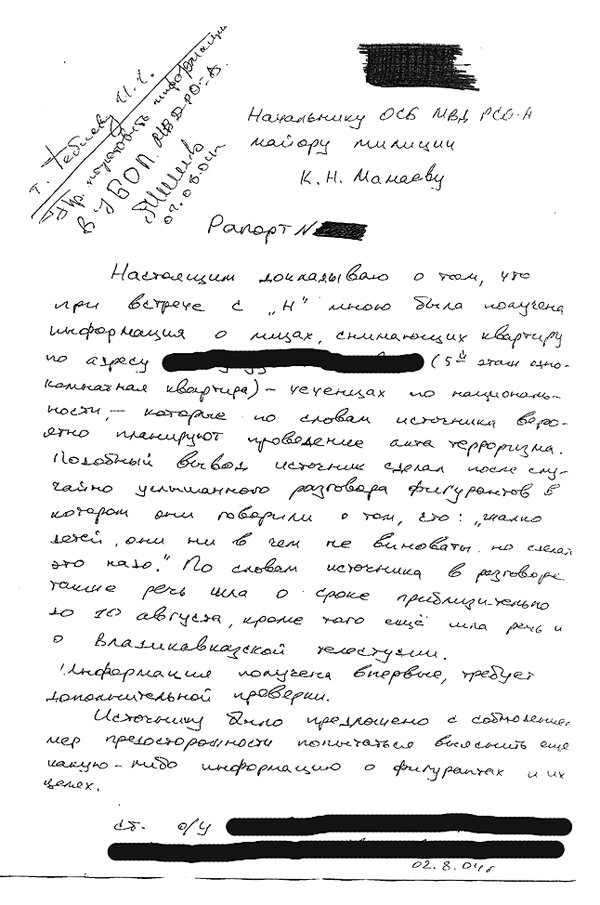 т. Тебиеву И.С.
Пр. подготовить информацию
в УБОП МВД РСО-А.
02.08.04г
Начальнику ОСБ МВД РСО-А
майору милиции
К.Н. Мамаеву
Рапорт №
Настоящим докладываю о том, что
при встрече с „Н" мною была получена
информация о лицах, снимающих квартиру
по адресу (5й этаж одно-
комнатная квартира) – чеченцах по националь-
ности, – которые по словам источника веро-
ятно планируют проведение акта терроризма.
Подобный вывод источник сделал после слу-
чайно услышанного разговора фигурантов в
котором они говорили о том, что: „жалко
детей, они ни в чем не виноваты но сделать
это надо." По словам источника в разговоре
также речь шла о сроке приблизительно
до 10 августа, кроме того ещё шла речь и
о Владикавказской телестудии.
Информация получена впервые, требует
дополнительной проверки.
Источнику было предложено с соблюдением
мер предосторожности попытаться выяснить ещё
какую-либо информацию о фигурантах и их
целях.
ст. о/у
02.8.04г